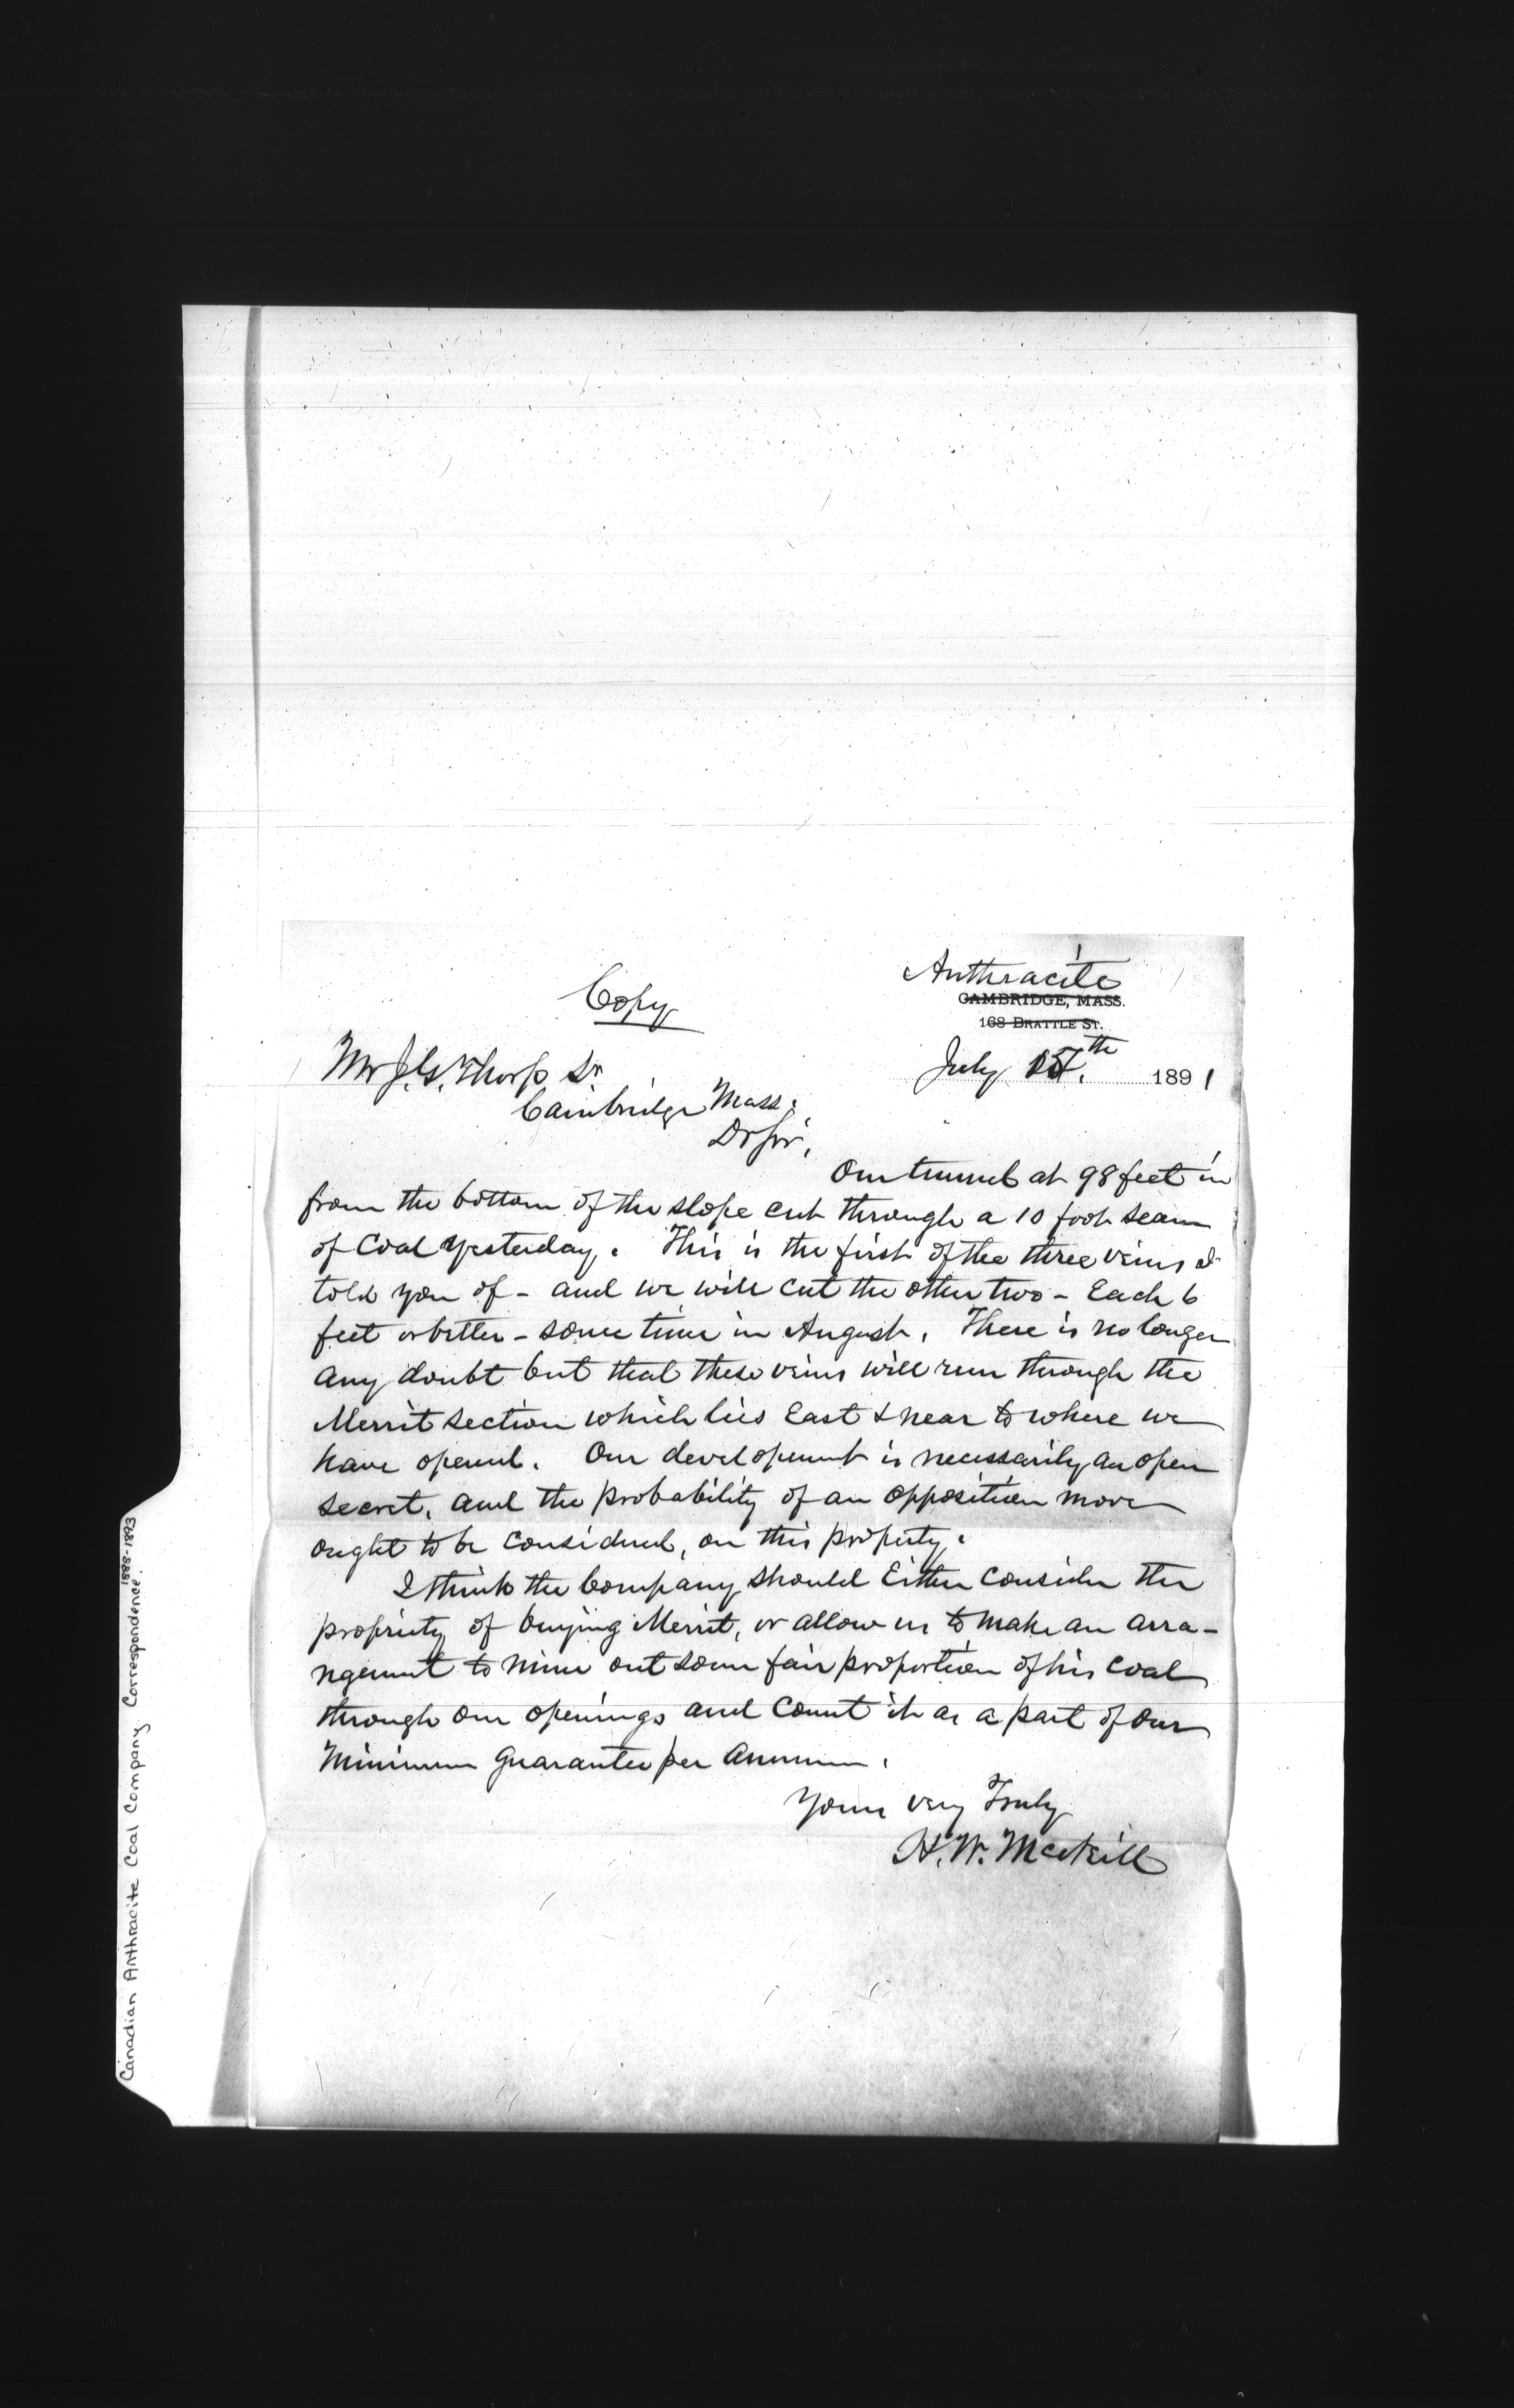 Copy
Anthracite
CAMBRIDGE, MASS.
168 BRATTLE ST.
July 15th. 1891
Mr J. G. Thorp Sr.
Cambridge Mass.
Dr Sir,
Our tunnel at 98 feet in
from the bottom of the slope cut through a 10 foot seam
of Coal yesterday. This is the first of the three veins I
told you of - and we will cut the other two - Each 6
feet or better - some time in August. There is no longer
any doubt but that these veins will run through the
Merrit section which lies East & near to where we
have opened. Our developement is necessarily an open
secret, and the probability of an opposition move
ought to be considered, on this property.
I think the Company should Either Consider the
propriety of buying Merrit, or allow us to make an arra-
ngement to mine out some fair proportion of his Coal
through our openings and Count it as a part of our
Minimum Guarantee per Annum.
Yours very Truly
H. W. McNeill
Canadian Anthracite Coal Company Correspondence.
1888-1893